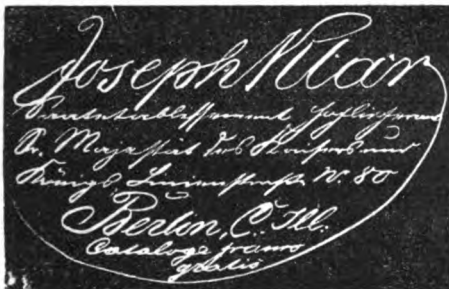 Joseph Klar
Saatetablissement Hoflieferant
Sr. Majestät des Kaisers und
Königs, Linienstraße N. 80
Berlin, C. Ill.
Cataloge franco
gratis